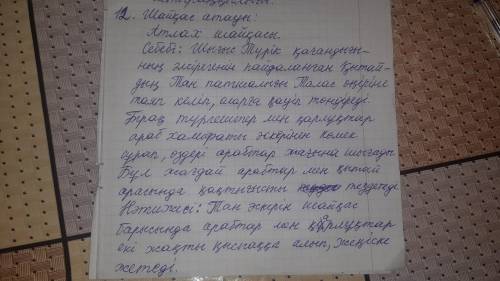 12. Шайқас атауы:
Атлах шайқасы.
Себебі: Шығыс Түрік қағандығы-
ның әлсірегенін пайдаланған Қытай-
дың Тан патшалығы Талас өңіріне
таяп келіп, оларға қауіп төндіреді.
Бірақ түргештер мен қарлұқтар
араб халифаты әскерінен көмек
сұрап, өздері арабтар жағына шығады.
Бұл жағдай арабтар мен қытай
арасында қақтығысты тездетеді.
Нәтижесі: Тан әскерін шайқас
барысында арабтар мен қарлұқтар
екі жақты қыспаққа алып, жеңіске
жетеді.